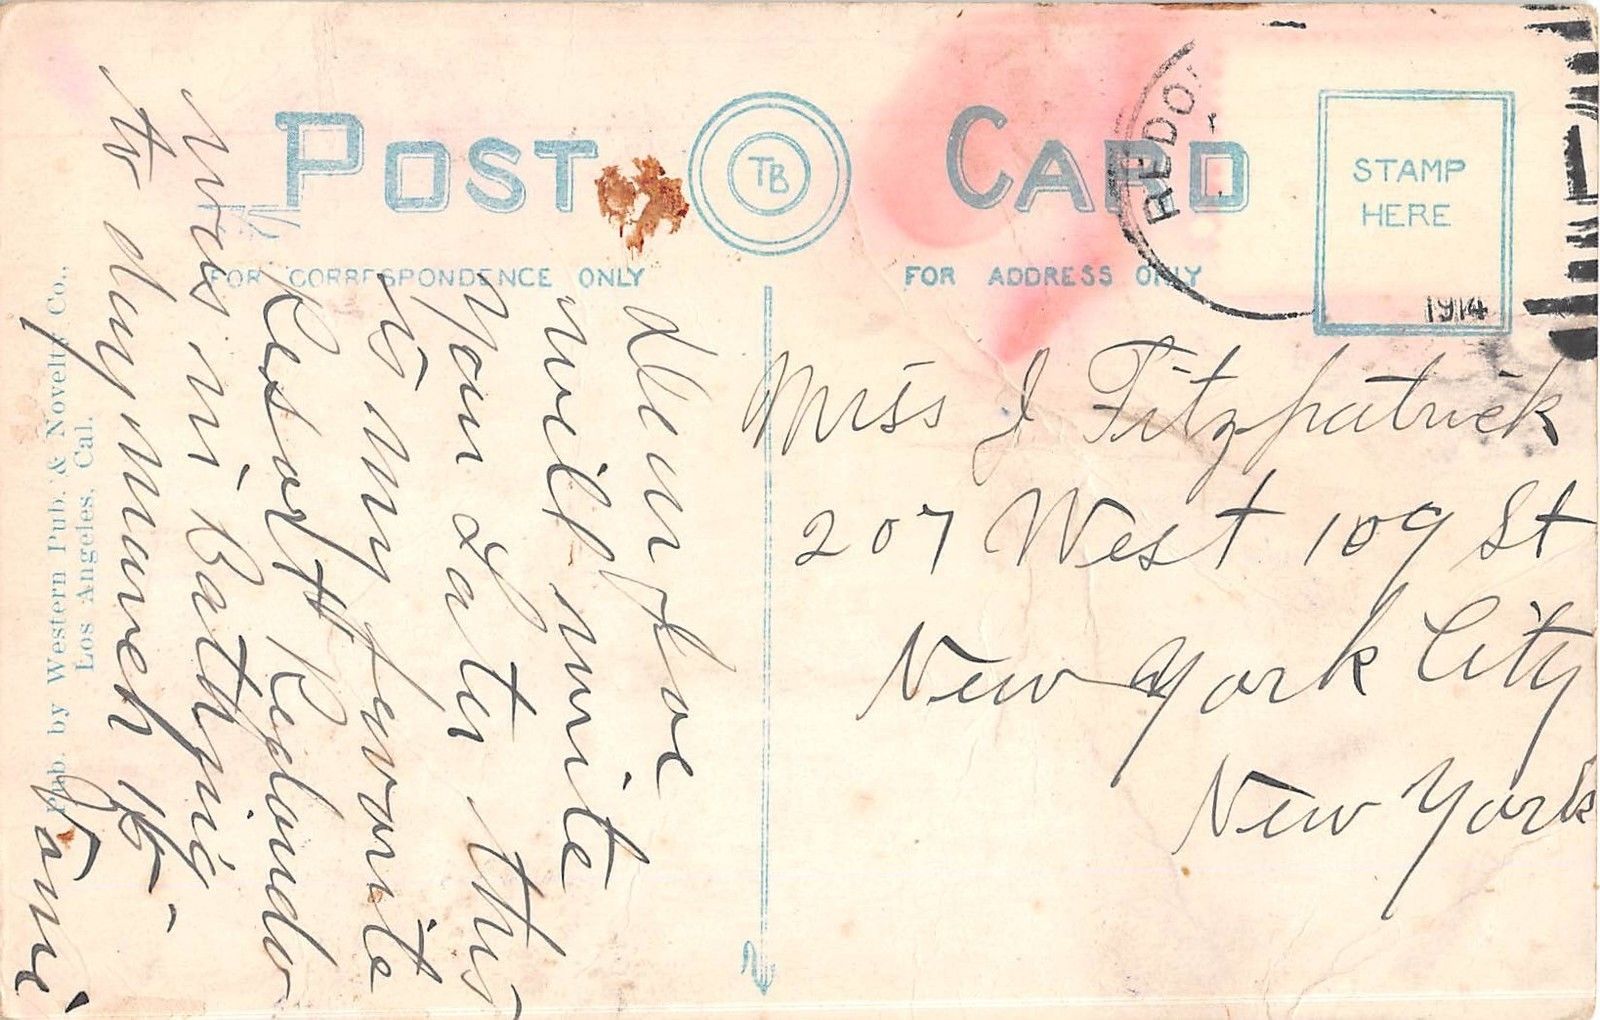 POST CARD
TB
FOR CORRESPONDENCE ONLY
FOR ADDRESS ONLY
STAMP
HERE
REDO
1914
Dear Joe
will write
you Later this
is my favorite
Resort Redondo
was in Bathing
to day march 15
Miss J Fitzpatrick
207 West 109 St
New York City
New York
Pub. by Western Pub. & Novelty Co.,
Los Angeles, Cal.